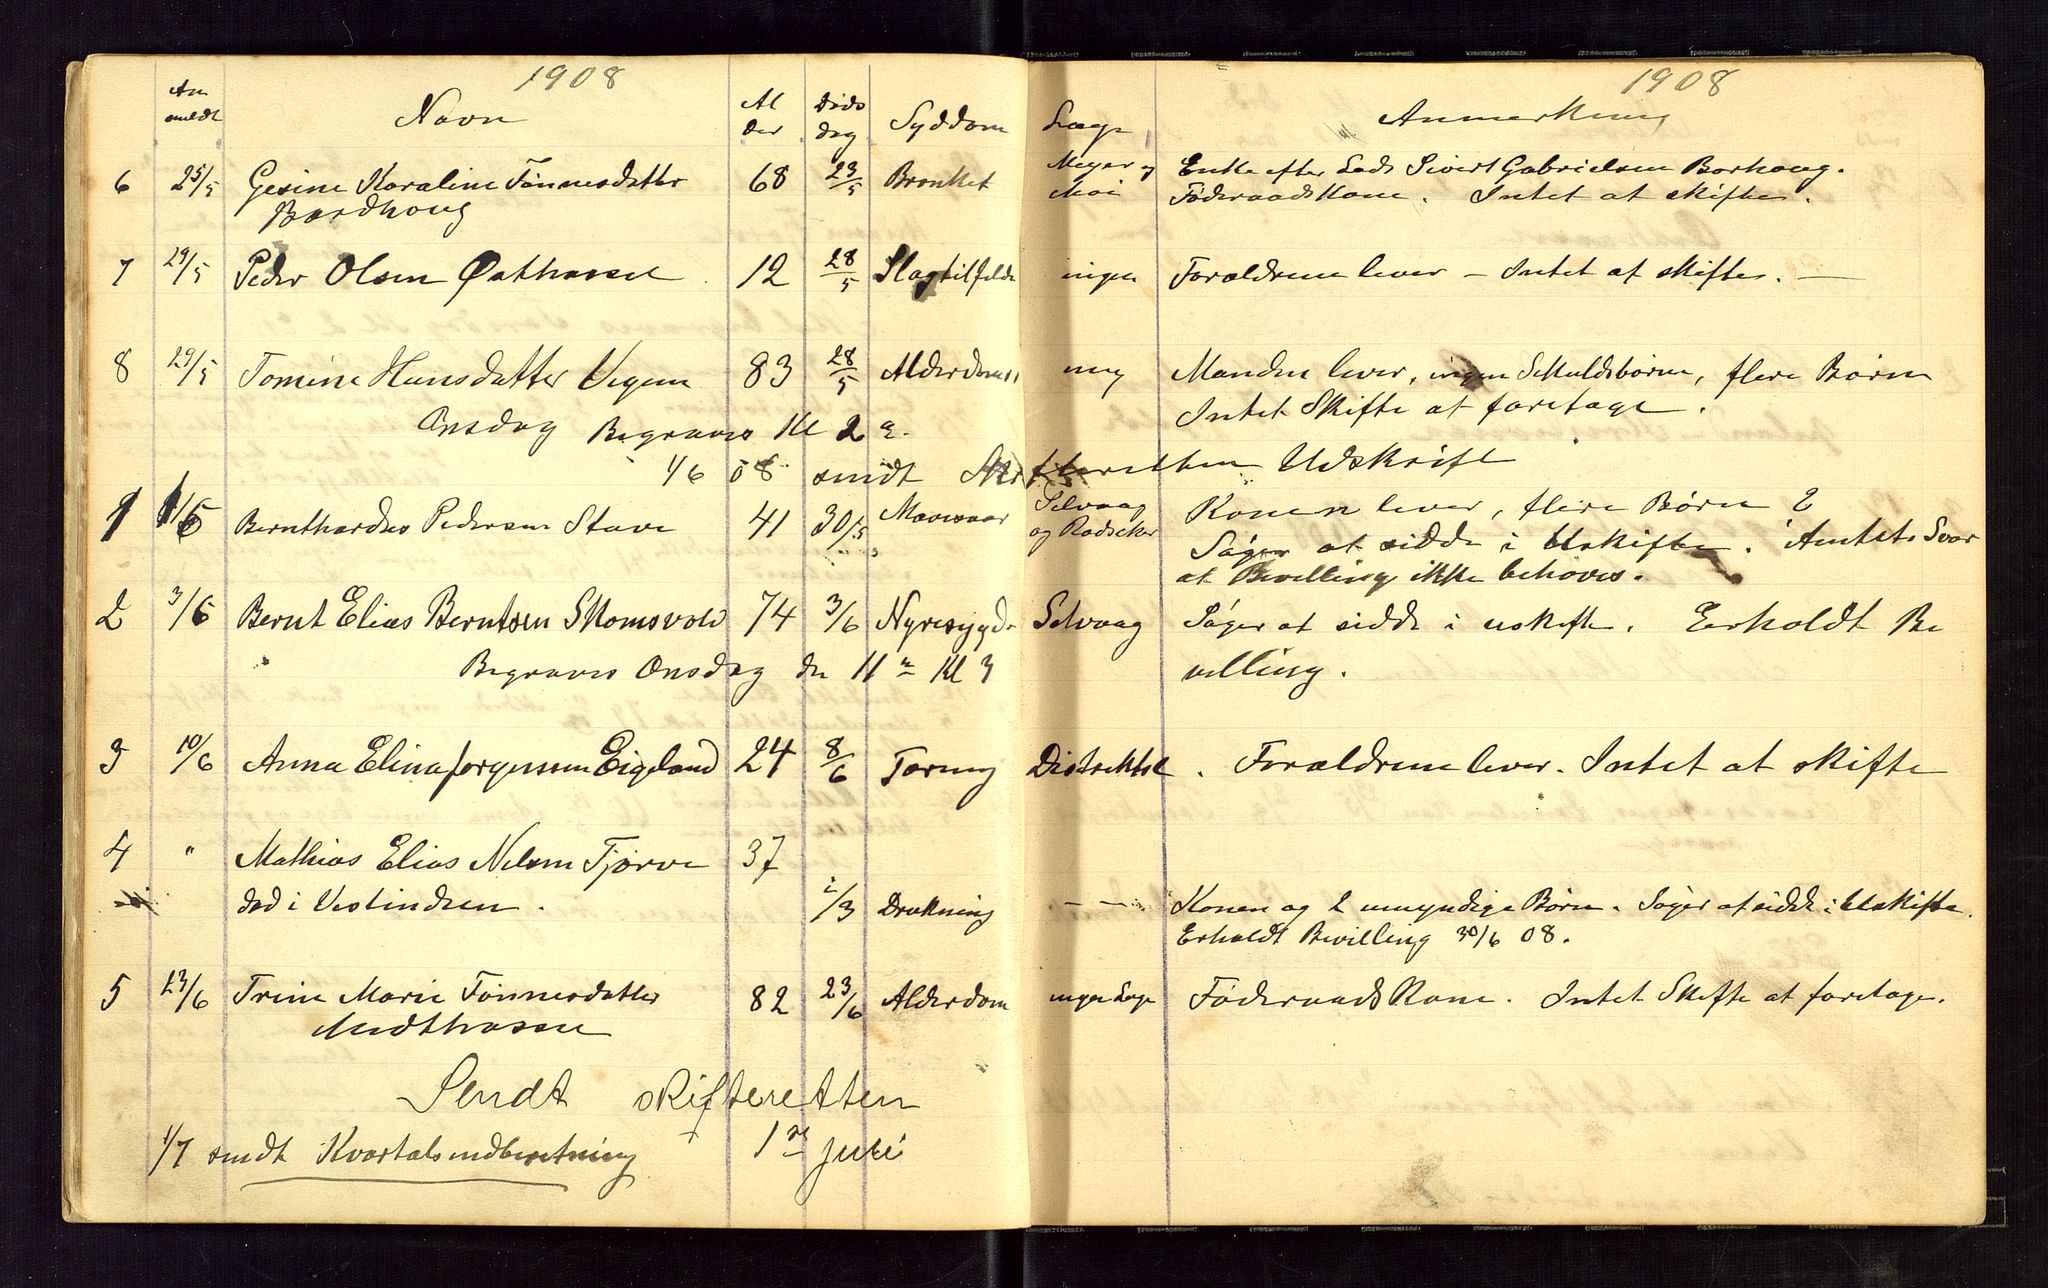 1908 1908
An meldt Navn Al der Døds dag Sygdom Læge Anmerkning
6 25/5 Gesine Karaline Tønnesdatter 68 23/5 Bronket Meyer og Enke efter Lods Sivert Gabrielsen Barhoug.
Bardhoug Moi Føderaadskone. Intet at skifte.
7 29/5 Peder Olsen Østhassel 12 28/5 Slagtilfelde ingen Forældrene lever - Intet at skifte. -
8 29/5 Tomine Hansdatter 83 28/5 Alderdoms Manden lever, ingen Skuldsbørn, flere Børn
Intet Skifte at foretage.
Onsdag Begraves Kl 2 e.
1/6 08 sendt Skifteretten Udskrift
1 1/6 Bernthardus Pedersen Stave 41 30/5 Mavesaar Selvaag Konen lever, flere Børn
og Rødseker Søger at sidde i Uskifte. Amtets Svar
at Bevilling ikke behøves.
2 3/6 Bernt Elias Berntsen Skomsvold 74 3/6 Nyresygd. Selvaag Søger at sidde i uskifte. Erholdt Be
Begraves Onsdag den 11te Kl 3 villing.
3 10/6 Anna Elina Jørgensen Eigeland 24 8/6 Tæring Distriktsl. Forældrene lever. Intet at skifte
4 " Mathias Elias Nelsen Tjørve 37
død i Vestindien. /3 Drukning — — Konen og 2 umyndige Børn. Søger at sidde i Uskifte.
Erholdt Bevilling 30/6 08.
5 23/6 Trine Marie Tønnesdatter 82 23/6 Alderdom ingen Læge Føderaads Kone. Intet Skifte at foretage.
Midthassel
Sendt skifteretten
1/7 sendt Kvartalsindberetning 1ste juli